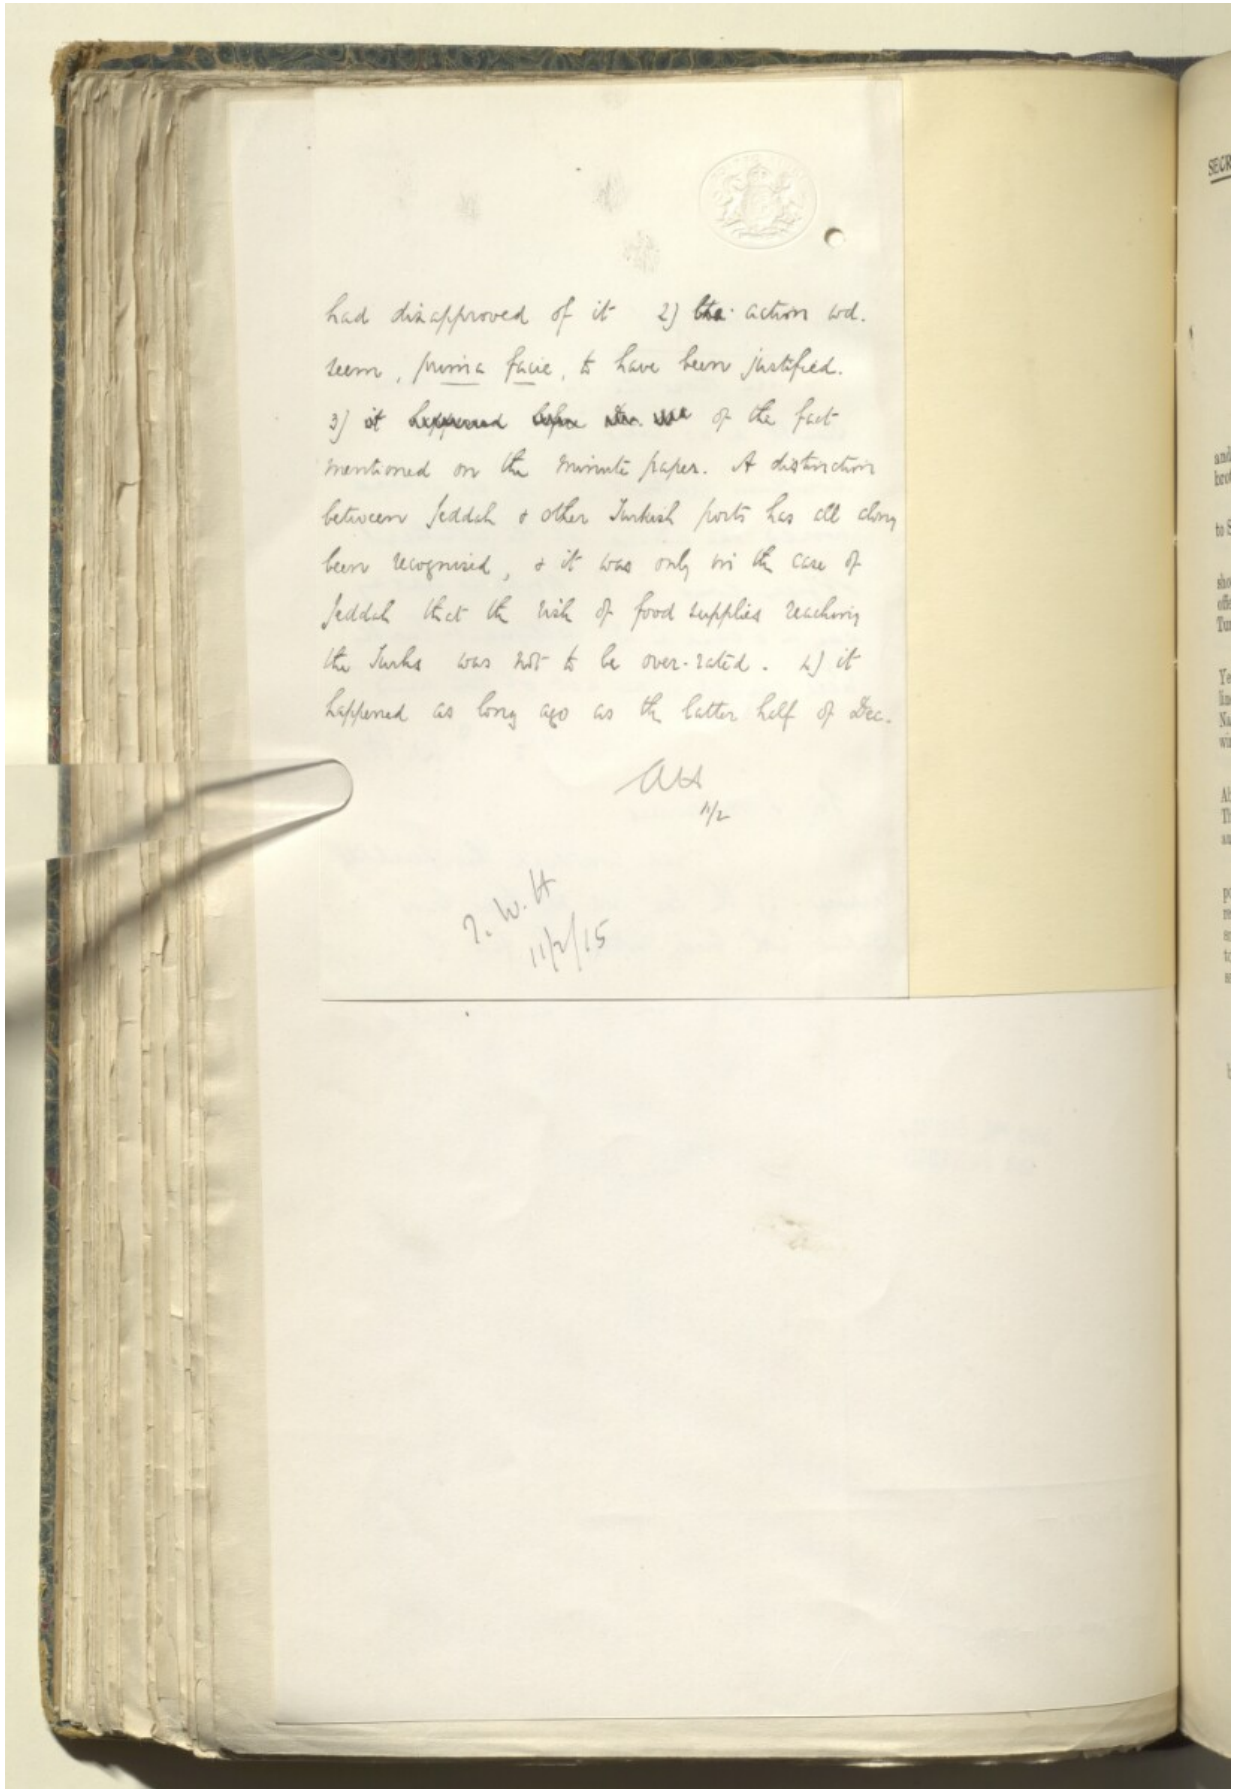 had disapproved of it 2) the action wd.
seem, prima facie, to have been justified.
3) it happened before Dec. of the fact
mentioned on the minute paper. A distinction
between Jeddah & other Turkish ports has all along
been recognised, & it was only in the case of
Jeddah that the risk of food supplies reaching
the Turks was not to be over-rated. 4) it
happened as long ago as the latter half of Dec.
11/2
T. W. H
11/2/15
SECR
and
to S
Tur
Ye
Na